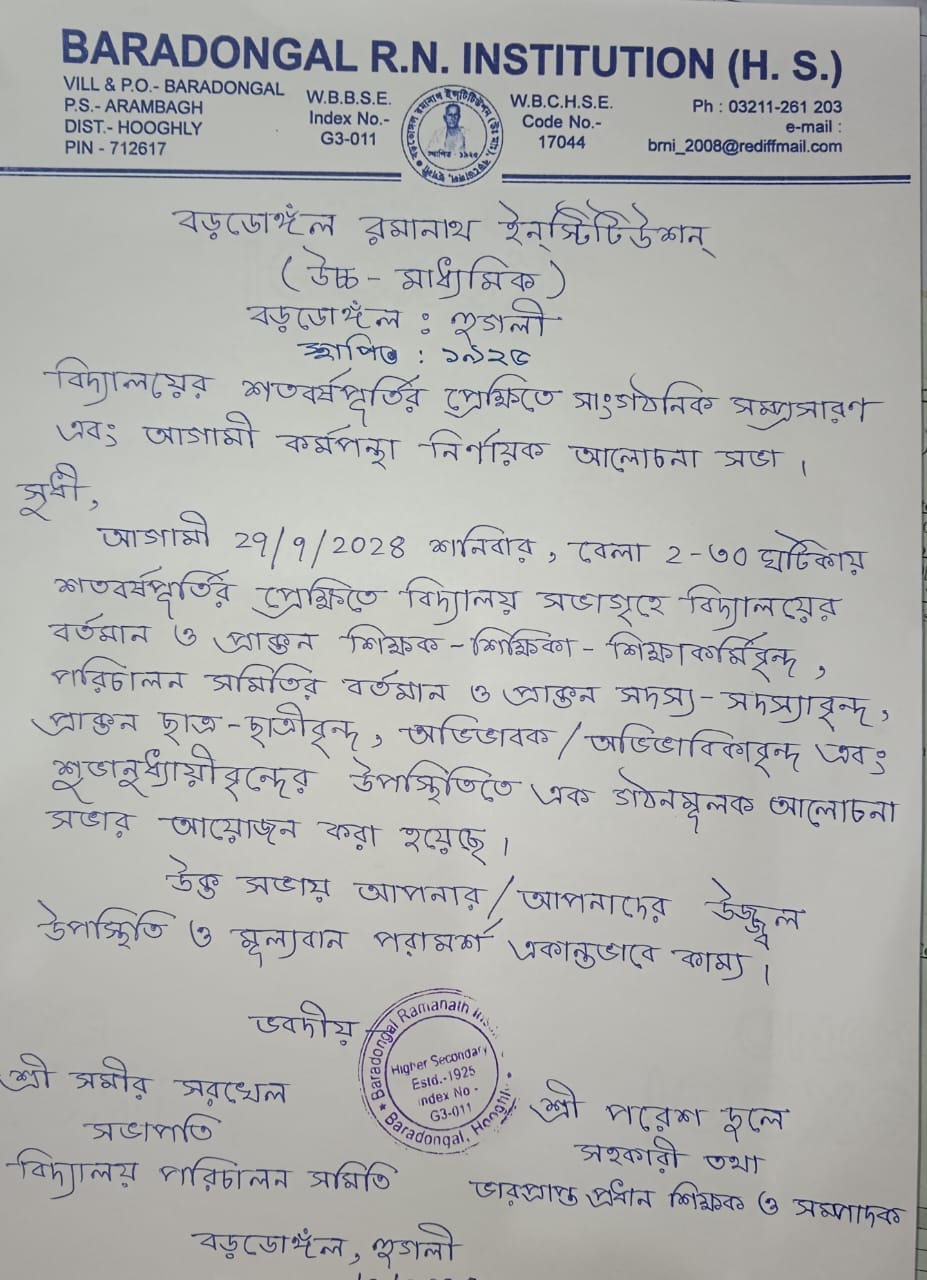 BARADONGAL R.N. INSTITUTION (H. S.)
VILL & P.O.- BARADONGAL
P.S.- ARAMBAGH
DIST.- HOOGHLY
PIN - 712617
W.B.B.S.E.
Index No.-
G3-011
W.B.C.H.S.E.
Code No.-
17044
Ph : 03211-261 203
e-mail :
brni_2008@rediffmail.com
বড়ডোঙ্গল রমানাথ ইন্‌স্টিটিউশন্
(উচ্চ - মাধ্যমিক)
বড়ডোঙ্গল : হুগলী
স্থাপিত : ১৯২৫
বিদ্যালয়ের শতবর্ষপূর্তির প্রেক্ষিতে সাংগঠনিক সম্প্রসারণ
এবং আগামী কর্মপন্থা নির্ণায়ক আলোচনা সভা ।
সুধী,
আগামী 29/9/2028 শনিবার, বেলা 2-৩০ ঘটিকায়
শতবর্ষপূর্তির প্রেক্ষিতে বিদ্যালয় সভাগৃহে বিদ্যালয়ের
বর্তমান ও প্রাক্তন শিক্ষক - শিক্ষিকা - শিক্ষাকর্মিবৃন্দ,
পরিচালন সমিতির বর্তমান ও প্রাক্তন সদস্য - সদস্যাবৃন্দ,
প্রাক্তন ছাত্র - ছাত্রীবৃন্দ, অভিভাবক / অভিভাবিকাবৃন্দ এবং
শুভানুধ্যায়ীবৃন্দের উপস্থিতিতে এক গঠনমূলক আলোচনা
সভার আয়োজন করা হয়েছে ।
উক্ত সভায় আপনার / আপনাদের উজ্জ্বল
উপস্থিতি ও মূল্যবান পরামর্শ একান্তভাবে কাম্য ।
ভবদীয়
Baradongal Ramanath
Higher Secondary
Estd.-1925
Index No -
G3-011
Baradongal, Hooghly
শ্রী সমীর সরখেল
সভাপতি
বিদ্যালয় পরিচালন সমিতি
শ্রী পরেশ দুলে
সহকারী তথা
ভারপ্রাপ্ত প্রধান শিক্ষক ও সম্পাদক
বড়ডোঙ্গল, হুগলী